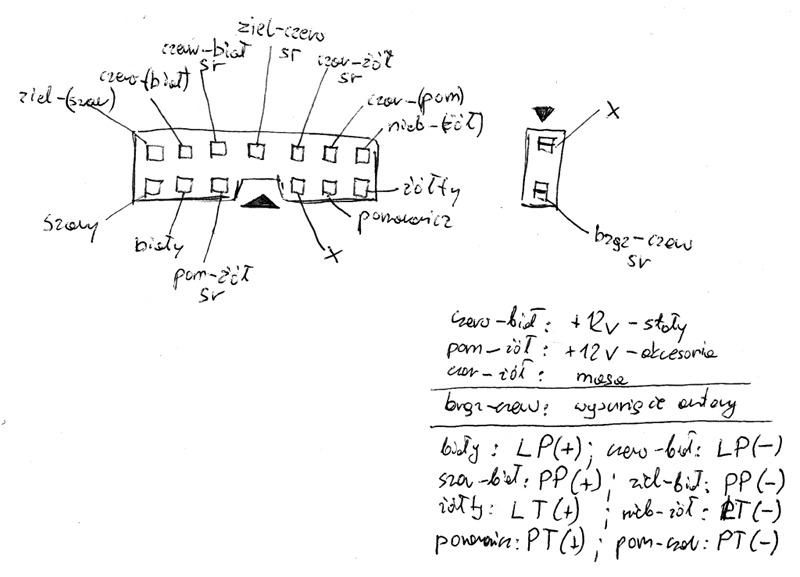 ziel-czerw
sr
czerw-biał
sr
czar-żół
sr
czerw-(biał)
czar-(pom)
ziel-(szar)
nieb-(żół)
X
szary
biały
pom-żół
sr
X
pomarańcz
żółty
brąz-czerw
sr
czerw-biał: +12V-stały
pom-żół: +12V-akcesoria
czar-żół: masa
brąz-czerw: wysunięcie anteny
biały: LP(+); czerw-biał: LP(-)
szar-biał: PP(+); ziel-biał: PP(-)
żółty: LT(+); nieb-żół: LT(-)
pomarańcz: PT(+); pom-czar: PT(-)